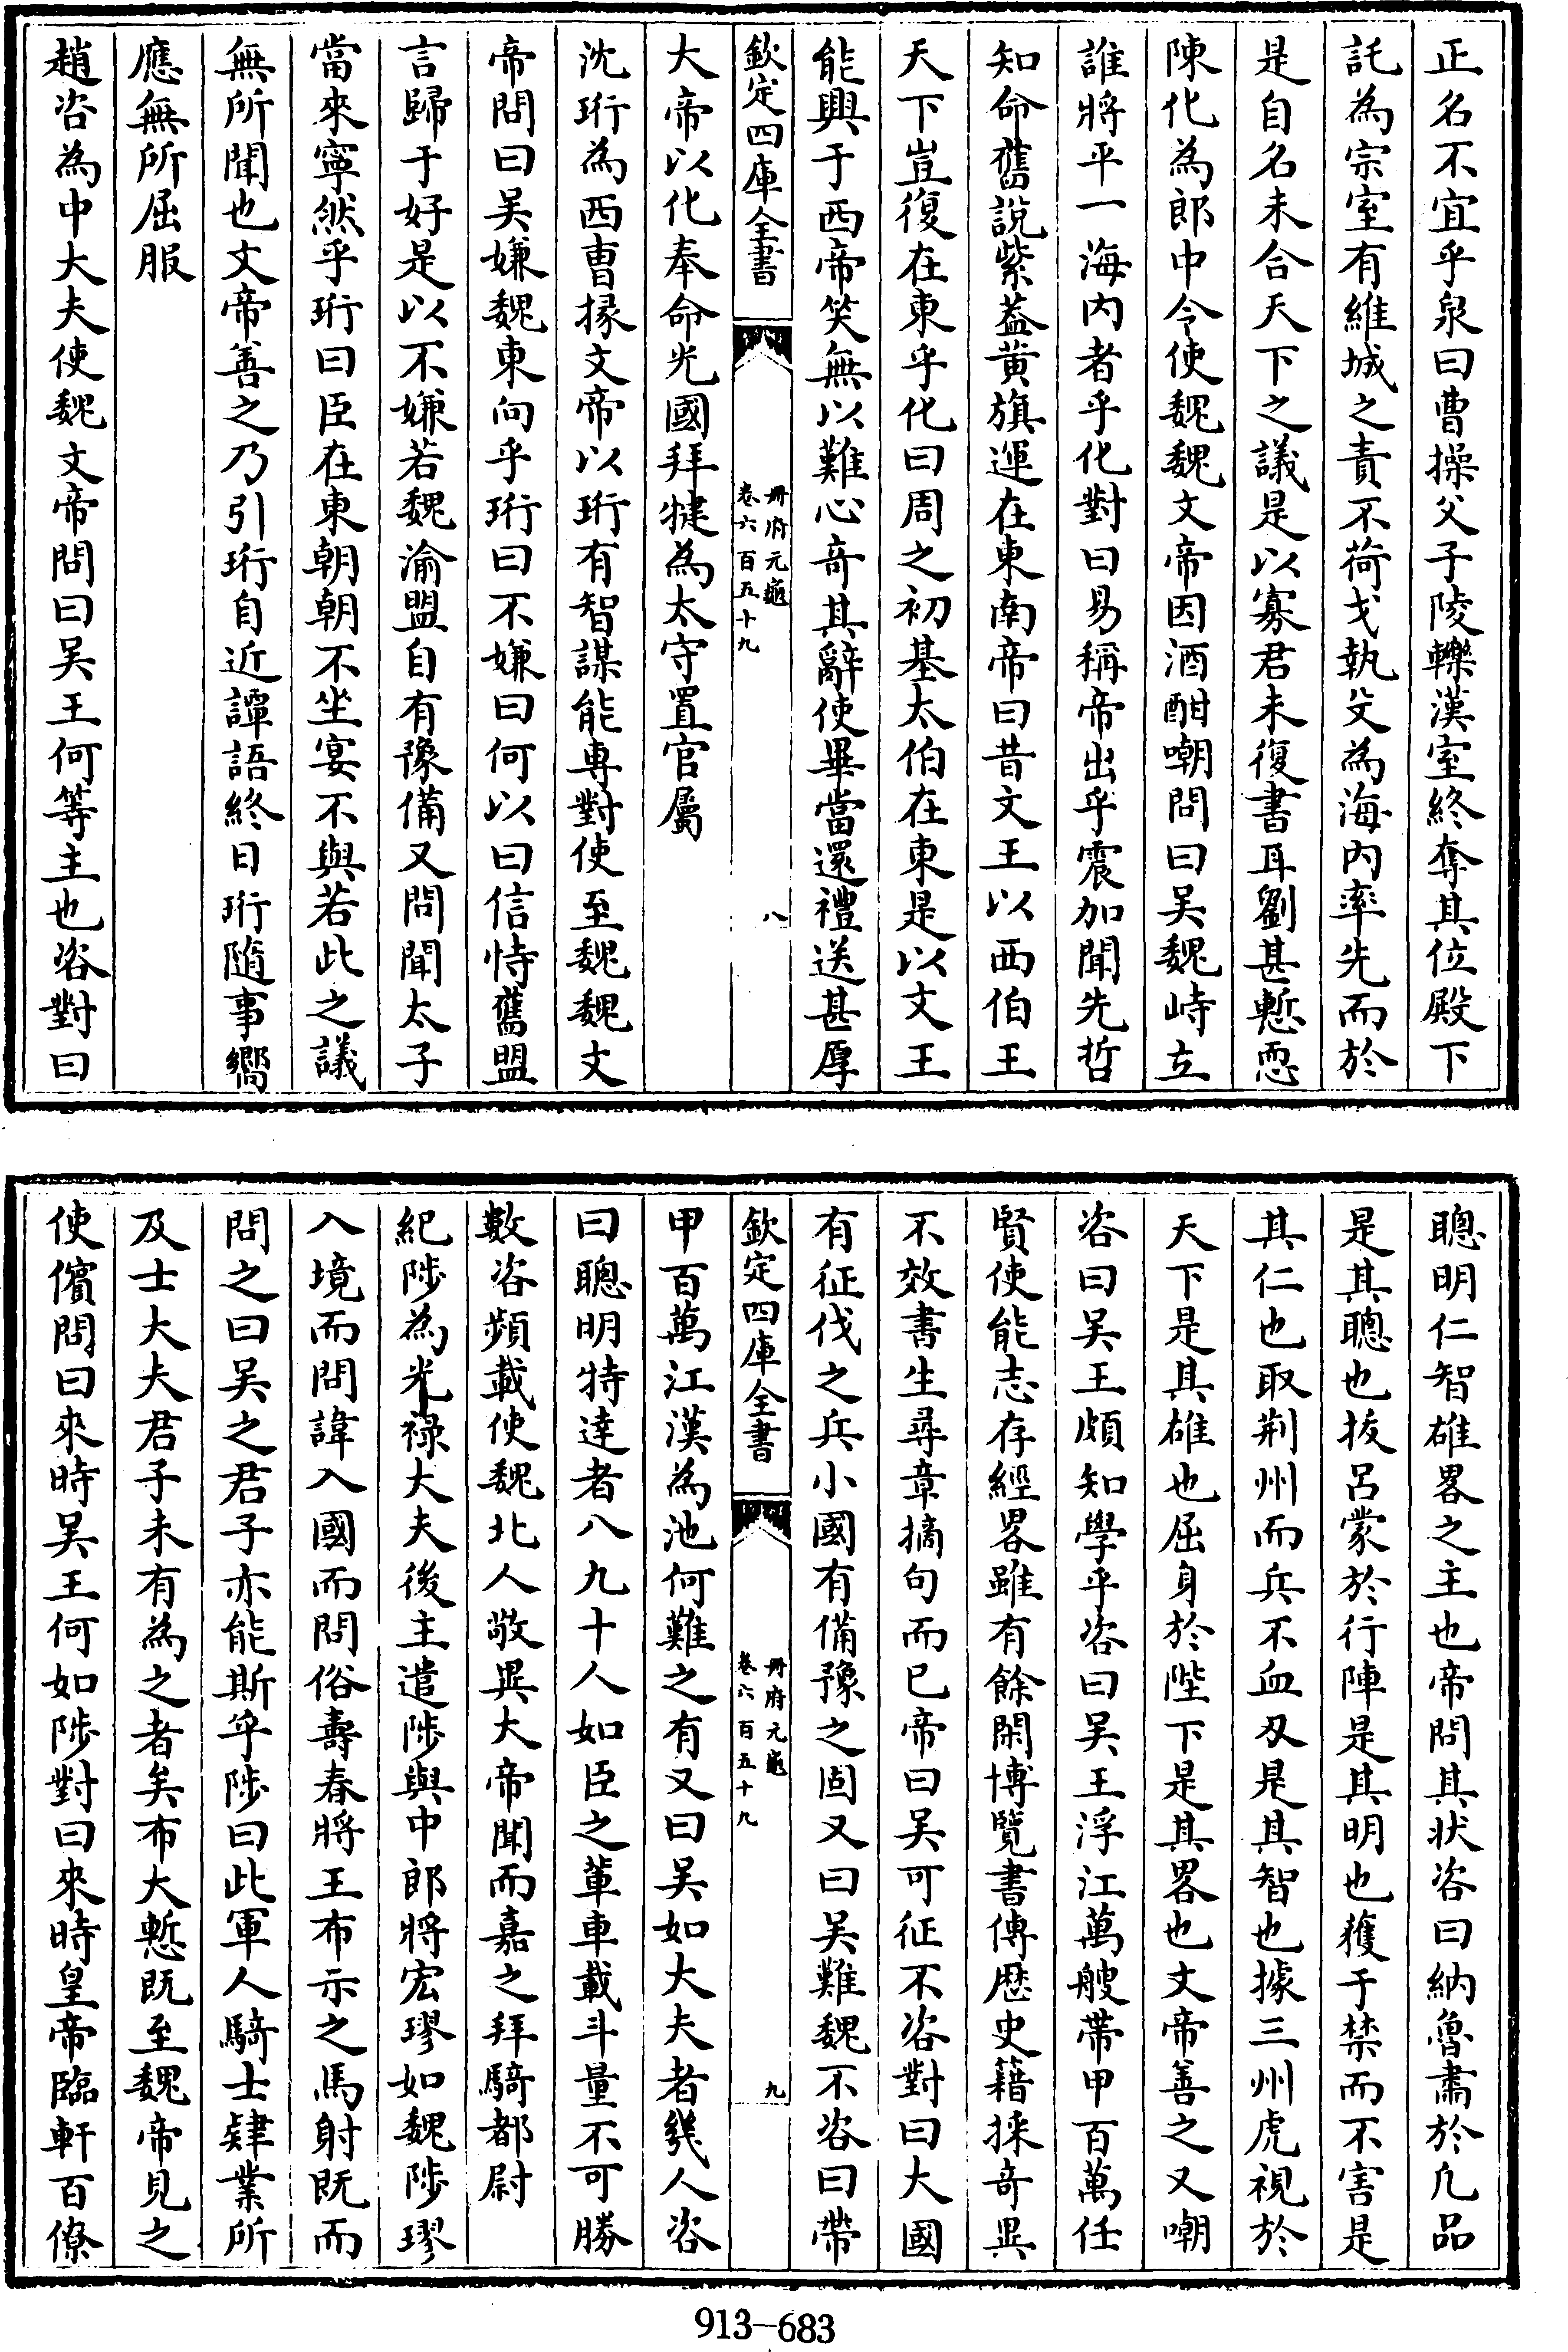 正名不宜乎泉曰曹操父子陵轢漢室終奪其位殿下
託為宗室有維城之責不荷戈執殳為海內率先而於
是自名未合天下之議是以寡君未復書耳劉甚慙恧
陳化為郎中令使魏魏文帝因酒酣嘲問曰吳魏峙立
誰將平一海內者乎化對曰易稱帝出乎震加聞先哲
知命舊說紫葢黃旗運在東南帝曰昔文王以西伯王
天下豈復在東乎化曰周之初基太伯在東是以文王
能興于西帝笑無以難心奇其辭使畢當還禮送甚厚
欽定四庫全書
冊府元龜
卷六百五十九
八
大帝以化奉命光國拜犍為太守置官屬
沈珩為西曹掾文帝以珩有智謀能專對使至魏魏文
帝問曰吳嫌魏東向乎珩曰不嫌曰何以曰信恃舊盟
言歸于好是以不嫌若魏渝盟自有豫備又問聞太子
當來寧然乎珩曰臣在東朝朝不坐宴不與若此之議
無所聞也文帝善之乃引珩自近譚語終日珩隨事嚮
應無所屈服
趙咨為中大夫使魏文帝問曰吳王何等主也咨對曰
聰明仁智雄畧之主也帝問其狀咨曰納魯肅於凡品
是其聰也拔呂蒙於行陣是其明也獲于禁而不害是
其仁也取荆州而兵不血刄是其智也據三州虎視於
天下是其雄也屈身於陛下是其畧也文帝善之又嘲
咨曰吳王頗知學乎咨曰吳王浮江萬艘帶甲百萬任
賢使能志存經畧雖有餘閑博覽書傳歷史籍採奇異
不效書生尋章摘句而已帝曰吳可征不咨對曰大國
有征伐之兵小國有備豫之固又曰吳難魏不咨曰帶
欽定四庫全書
冊府元龜
卷六百五十九
九
甲百萬江漢為池何難之有又曰吳如大夫者幾人咨
曰聰明特達者八九十人如臣之軰車載斗量不可勝
數咨頻載使魏北人敬異大帝聞而嘉之拜騎都尉
紀陟為光祿大夫後主遣陟與中郎將宏璆如魏陟璆
入境而問諱入國而問俗壽春將王布示之馬射既而
問之曰吳之君子亦能斯乎陟曰此軍人騎士肄業所
及士大夫君子未有為之者矣布大慙既至魏帝見之
使儐問曰來時吳王何如陟對曰來時皇帝臨軒百僚
913-683